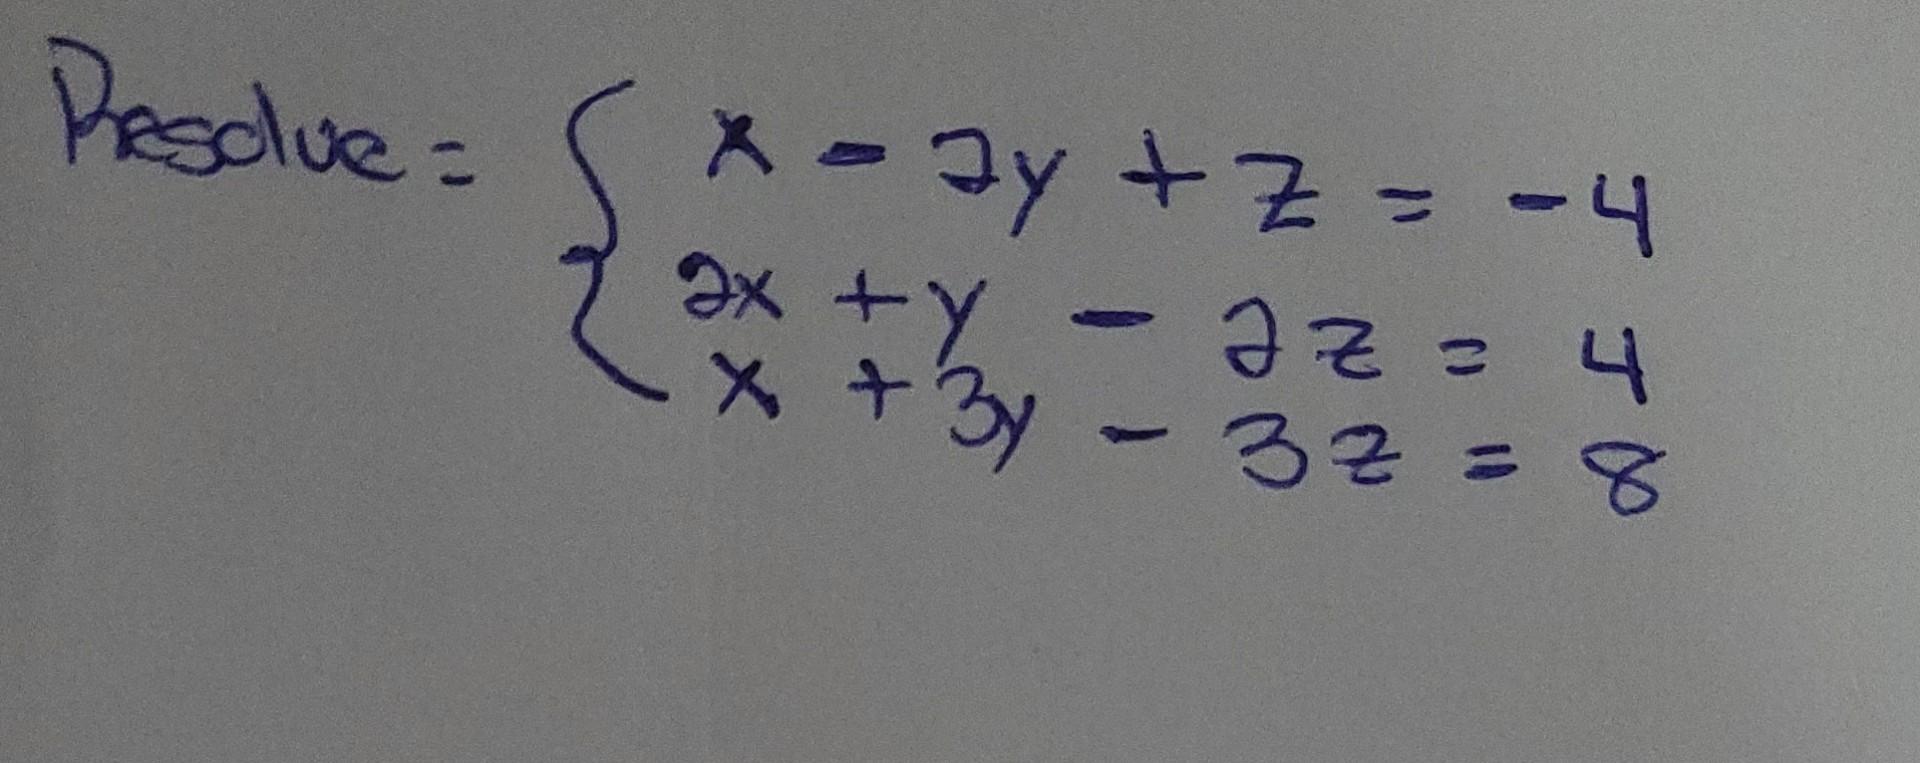 Resolve = { x - 2y + z = -4
2x + y - 2z = 4
x + 3y - 3z = 8